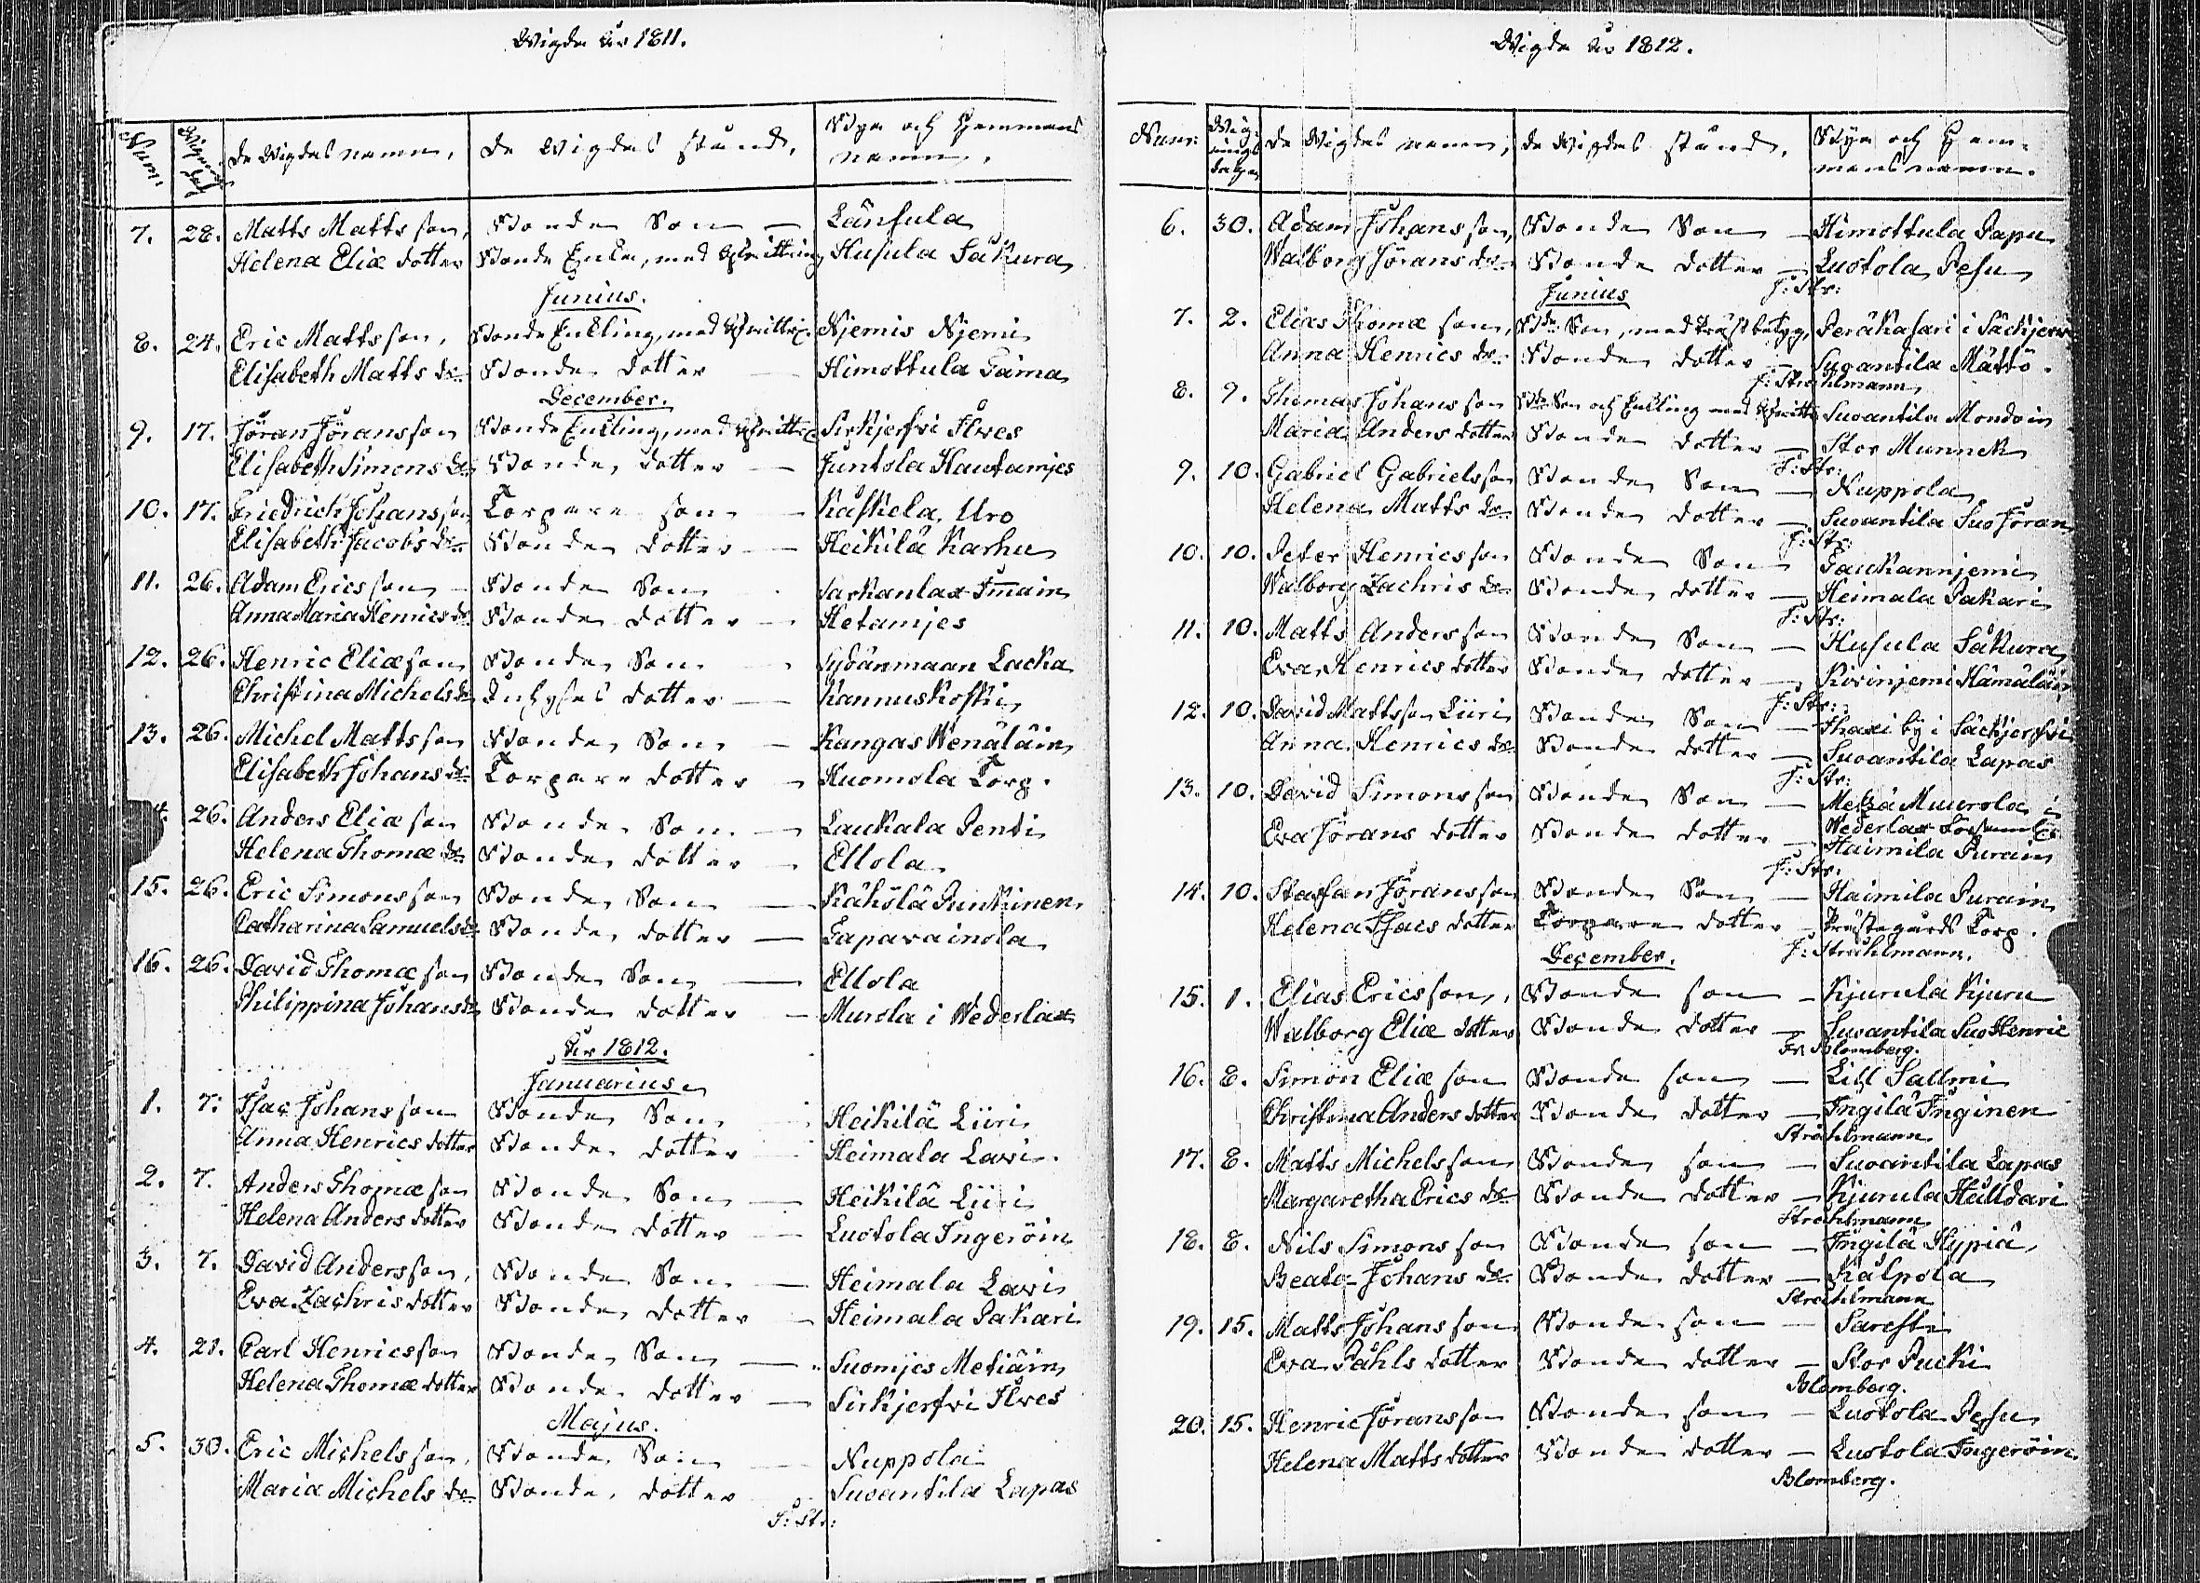 Wigde år 1811.
Num: Wignings dag De Wigdas namn, De Wigdas stånd, Byn och Hemmans namn.
7. 28. Matts Mattsson, Bonde Son — Länsula
Helena Eliæ dotter Bonde Enka, med afvittring Husula Säkura
Junius.
8. 24. Eric Mattsson, Bonde Enkling, med afvittr: Njemis Njemi
Elisabeth Matts dr Bonde dotter — Himottula Taima
December.
9. 17. Jöran Jöransson Bonde Enkling, med afvittr: Sirkjerfvi Ilwes
Elisabeth Simons dr Bonde dotter — Juntola Hautamjes
10. 17. Friedrich Johansson Torpare son — Kaskela Uro
Elisabeth Jacobs dr Bonde dotter — Heikilä Karhu
11. 26. Adam Ericsson — Bonde Son Sarkanlax Imain
Anna Maria Henrics dr Bonde dotter — Hetamjes
12. 26. Henric Eliæson Bonde Son Sydänmaan Lacka
Christina Michels dr Inhyses dotter — Kannuskoski
13. 26. Michel Mattsson Bonde Son — Kangas Wenäläin
Elisabeth Johans dr Torpare dotter — Kuomola Torp.
26. Anders Eliæson Bonde Son — Laukala Penti
Helena Thomæ dr Bonde dotter — Ellola
15. 26. Eric Simonsson Bonde Son — Kähölä Punkinen
Catharina Samuels dr Bonde dotter — Tapavainola
16. 26. David Thomæson Bonde Son — Ellola
Philippina Johans dr Bonde dotter — Murola i Wederlax
År 1812.
Januarius
1. 7. Isac Johansson Bonde Son Heikilä Liiri
Anna Henrics dotter Bonde dotter Heimala Lavi.
2. 7. Anders Thomæson Bonde Son — Heikilä Liiri
Helena Anders dotter Bonde dotter — Luotola Ingeröin
3. 7. David Andersson, Bonde Son — Heimala Lavi
Eva Zachris dotter Bonde dotter — Heimala Pakari
4. 21. Carl Henricsson Bonde Son — Suomjes Metiäin
Helena Thomæ dotter Bonde dotter — Sirkjerfvi Ilves
Majus.
5. 30. Eric Michelsson, Bonde Son — Nuppola
Maria Michels dr Bonde dotter Suoantila Lapas
J: Str:
Wigde år 1812.
Num: Wignings dagen De Wigdas namn, De Wigdas stånd, Byn och Hemmans namn.
6. 30. Adam Johansson, Bonde Son — Himottula Papu
Walborg Jörans dr Bonde dotter — Luotola Pesu
J: Str:
Junius
7. 2. Elias Thomæ son, Bde Son, med Prästbetyg, Peräkasari i Säckjerfvi
Anna Henrics dr Bonde dotter — Suoantila Mättö.
J: Strahlmann
8. 9. Thomas Johansson Bde Son och Enkling med afvittr: Suoantila Mondoin
Maria Anders dotter Bonde dotter — Stor Munnek
J: Str:
9. 10. Gabriel Gabrielsson Bonde Son — Nuppola
Helena Matts dr Bonde dotter — Suoantila Suo Jöran
J: Str:
10. 10. Peter Henricsson Bonde Son Taukannjemi
Walborg Zachris dr Bonde dotter — Heimala Pakari
J: Str:
11. 10. Matts Andersson Bonde Son — Husula Säkura
Eva Henrics dotter Bonde dotter — Koivinjemi Hämäläin
J: Str:
12. 10. David Mattsson Liiri Bonde Son — Ihaxi by i Säckjerfvi
Anna Henrics dr Bonde dotter — Suoantila Lapas
J: Str:
13. 10. David Simonsson Bonde Son — Metzä Muurola i
Wederlax Sochn
Eva Jörans dotter Bonde dotter — Haimila Purain
J: Str:
14. 10. Staffan Jöransson Bonde Son — Haimila Purain
Helena Isacs dotter Torpare dotter — Prästegårds Torp.
J: Strahlmann.
December.
15. 1. Elias Ericsson, Bonde son — Kjurula Kjuru
Walborg Eliæ dotter Bonde dotter — Suoantila Suo Henric
Fr. Blomberg.
16. 8. Simon Eliæ son Bonde son — Lihl Sallmi
Christina Anders dotter Bonde dotter — Ingilä Inginen
Strahlmann
17. 8. Matts Michelsson Bonde son — Suoantila Lapas
Margaretha Erics dr Bonde dotter — Kjurula Halldari
Strahlmann
18. 8. Nils Simonsson Bonde son — Ingilä Hypiä
Beata Johans dr Bonde dotter — Kälpola
Strahlmann
19. 15. Matts Johansson Bonde son — Saresti
Eva Påhls dotter Bonde dotter — Stor Pucki
Blomberg.
20. 15. Henric Jöransson Bonde son — Luotola Pesu
Helena Matts dotter Bonde dotter — Luotola Ingeröin
Blomberg.